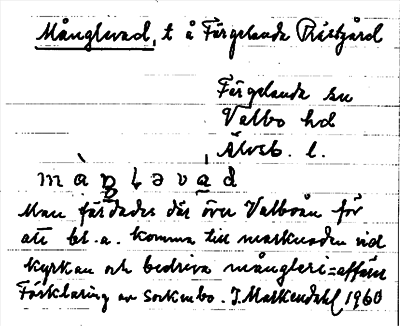 Månglevad, t å Färgelanda Prästgård
Färgelanda sn
Valbo hd
Älvsb. l.
Man färdades där över Valboån för
att bl.a. komma till marknaden vid
kyrkan och bedriva mångleri=affärer
Förklaring av sockenbo. J. Markendahl 1960